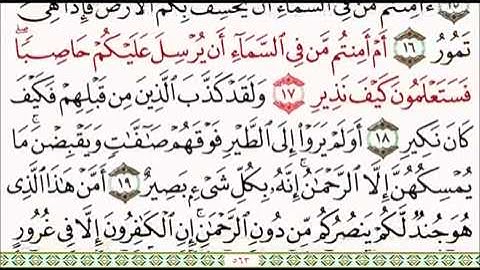 ءَأَمِنتُم مَّن فِى ٱلسَّمَآءِ أَن يَخْسِفَ بِكُمُ ٱلْأَرْضَ فَإِذَا هِىَ
تَمُورُ ١٦ أَمْ أَمِنتُم مَّن فِى ٱلسَّمَآءِ أَن يُرْسِلَ عَلَيْكُمْ حَاصِبًا ۖ
فَسَتَعْلَمُونَ كَيْفَ نَذِيرِ ١٧ وَلَقَدْ كَذَّبَ ٱلَّذِينَ مِن قَبْلِهِمْ فَكَيْفَ
كَانَ نَكِيرِ ١٨ أَوَلَمْ يَرَوْا۟ إِلَى ٱلطَّيْرِ فَوْقَهُمْ صَـٰٓفَّـٰتٍ وَيَقْبِضْنَ ۚ مَا
يُمْسِكُهُنَّ إِلَّا ٱلرَّحْمَـٰنُ ۚ إِنَّهُۥ بِكُلِّ شَىْءٍۭ بَصِيرٌ ١٩ أَمَّنْ هَـٰذَا ٱلَّذِى
هُوَ جُندٌ لَّكُمْ يَنصُرُكُم مِّن دُونِ ٱلرَّحْمَـٰنِ ۚ إِنِ ٱلْكَـٰفِرُونَ إِلَّا فِى غُرُورٍ
٥٦٣